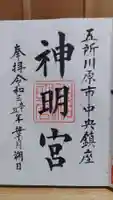 五所川原市中央鎮座
神明宮
奉拝令和三年葉月朔日